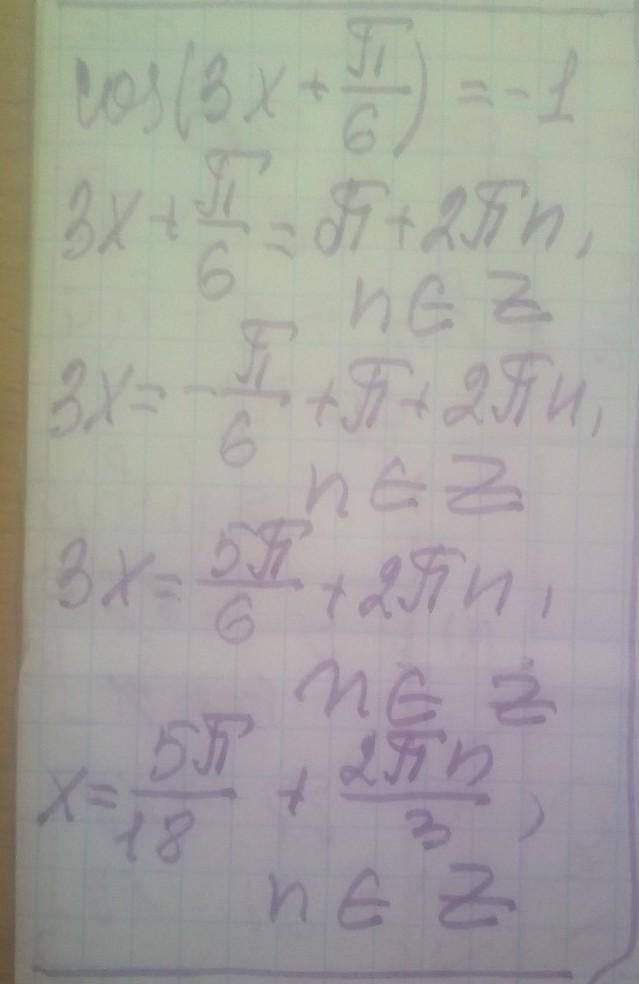 cos(3x + π/6) = -1
3x + π/6 = π + 2πn,
n ∈ Z
3x = -π/6 + π + 2πn,
n ∈ Z
3x = 5π/6 + 2πn,
n ∈ Z
x = 5π/18 + 2πn/3,
n ∈ Z